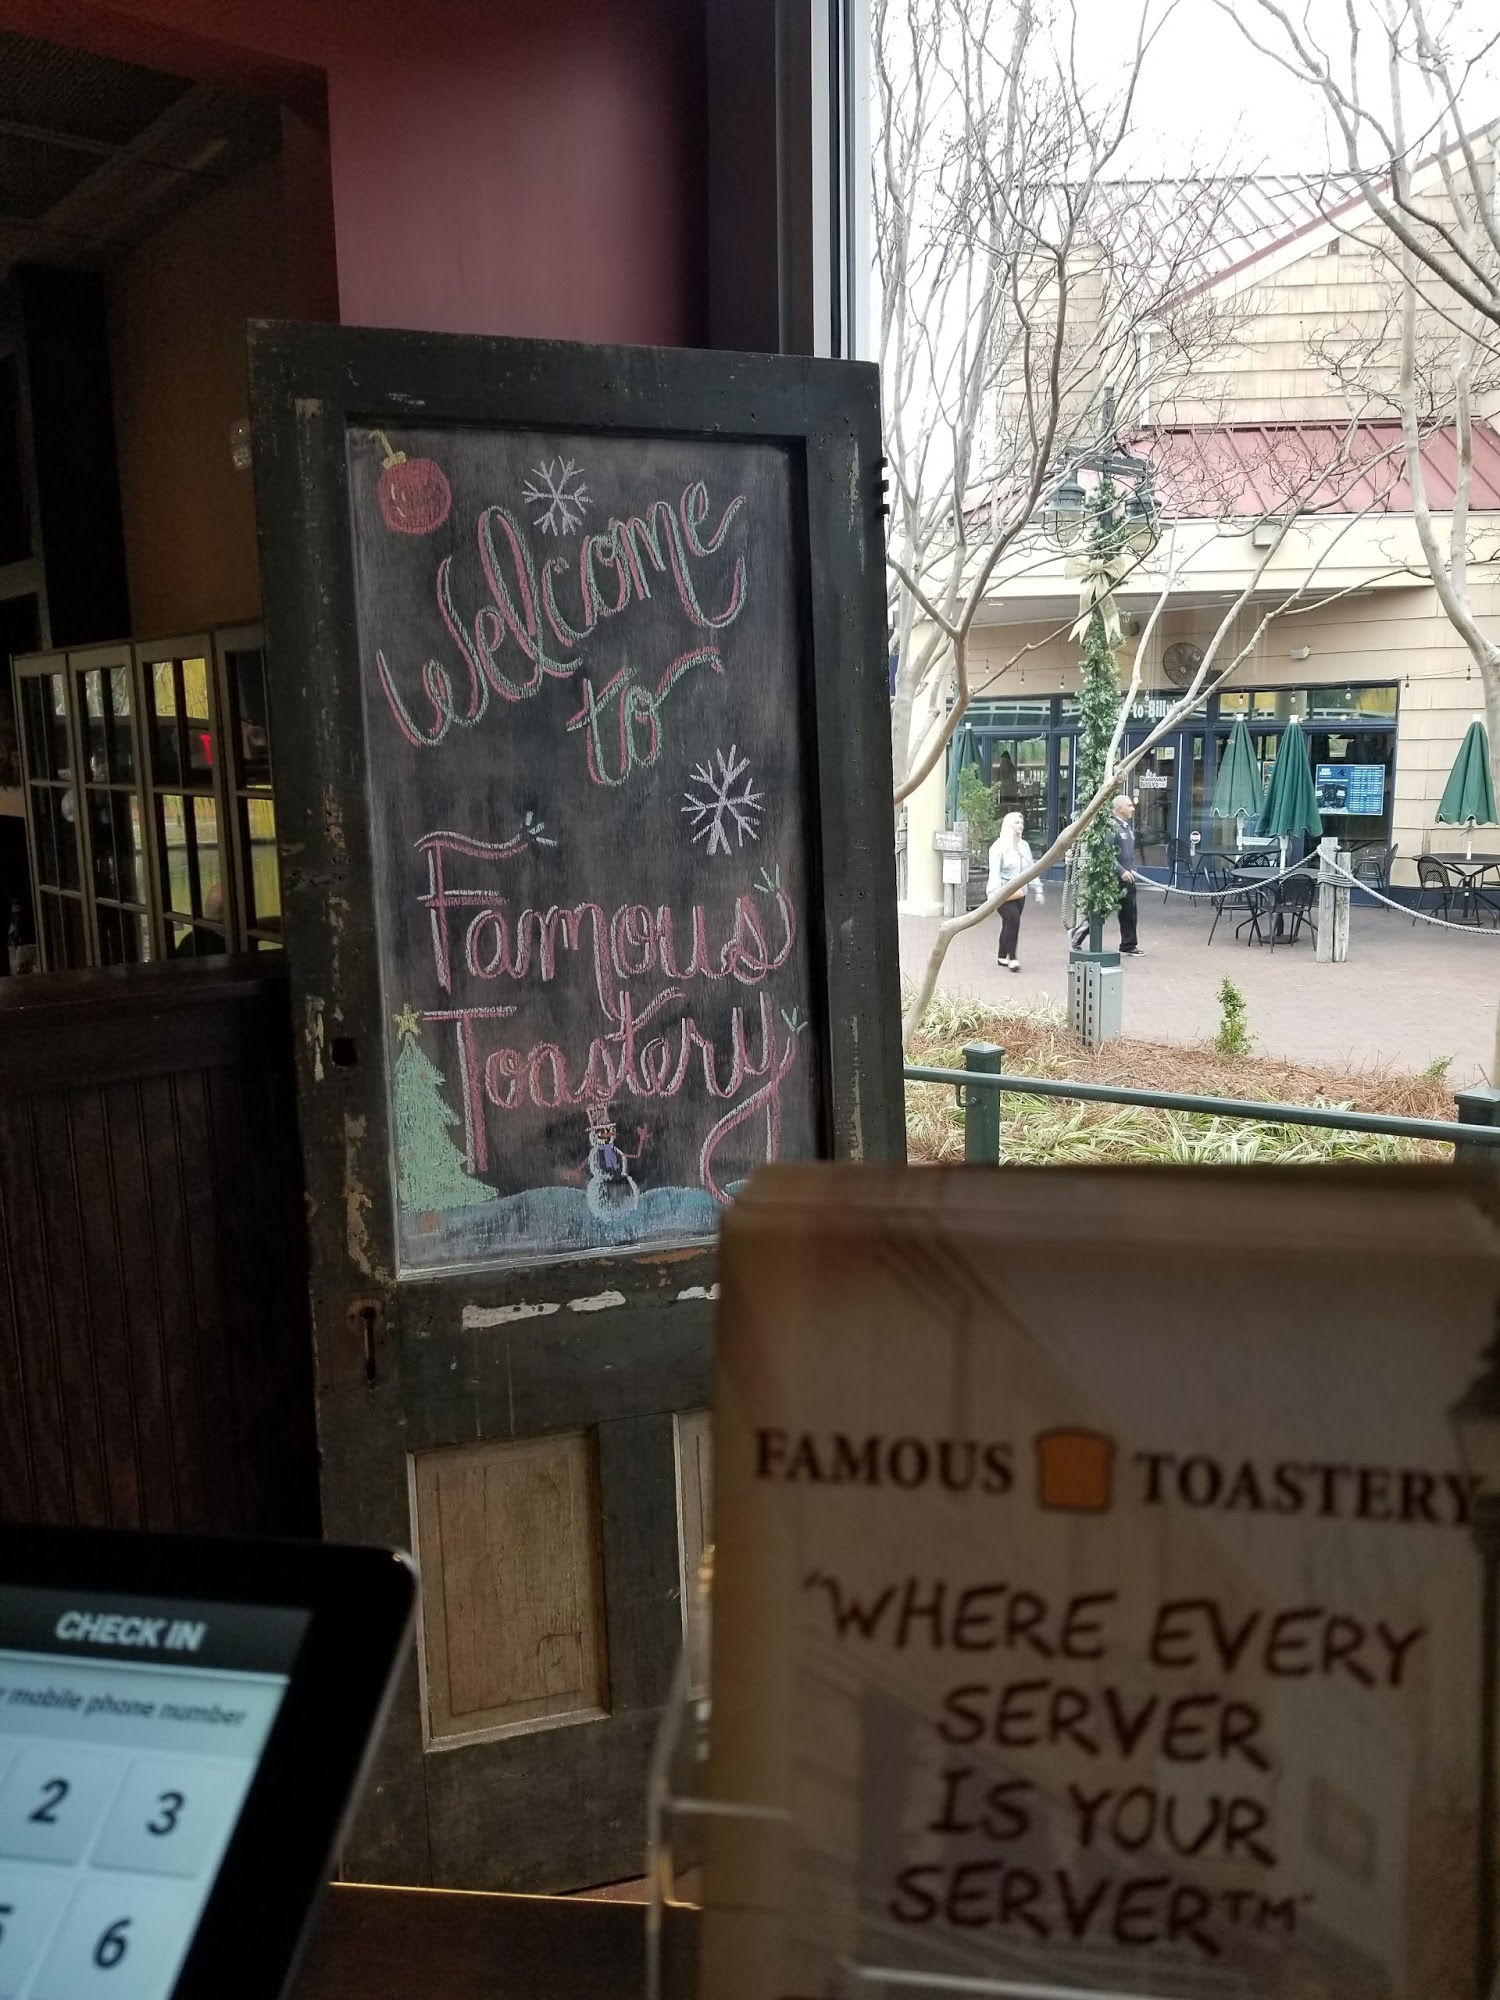 Welcome
to
Famous
Toastery
to Billy
FAMOUS TOASTERY
"WHERE EVERY
SERVER
IS YOUR
SERVER™"
CHECK IN
mobile phone number
2 3
6